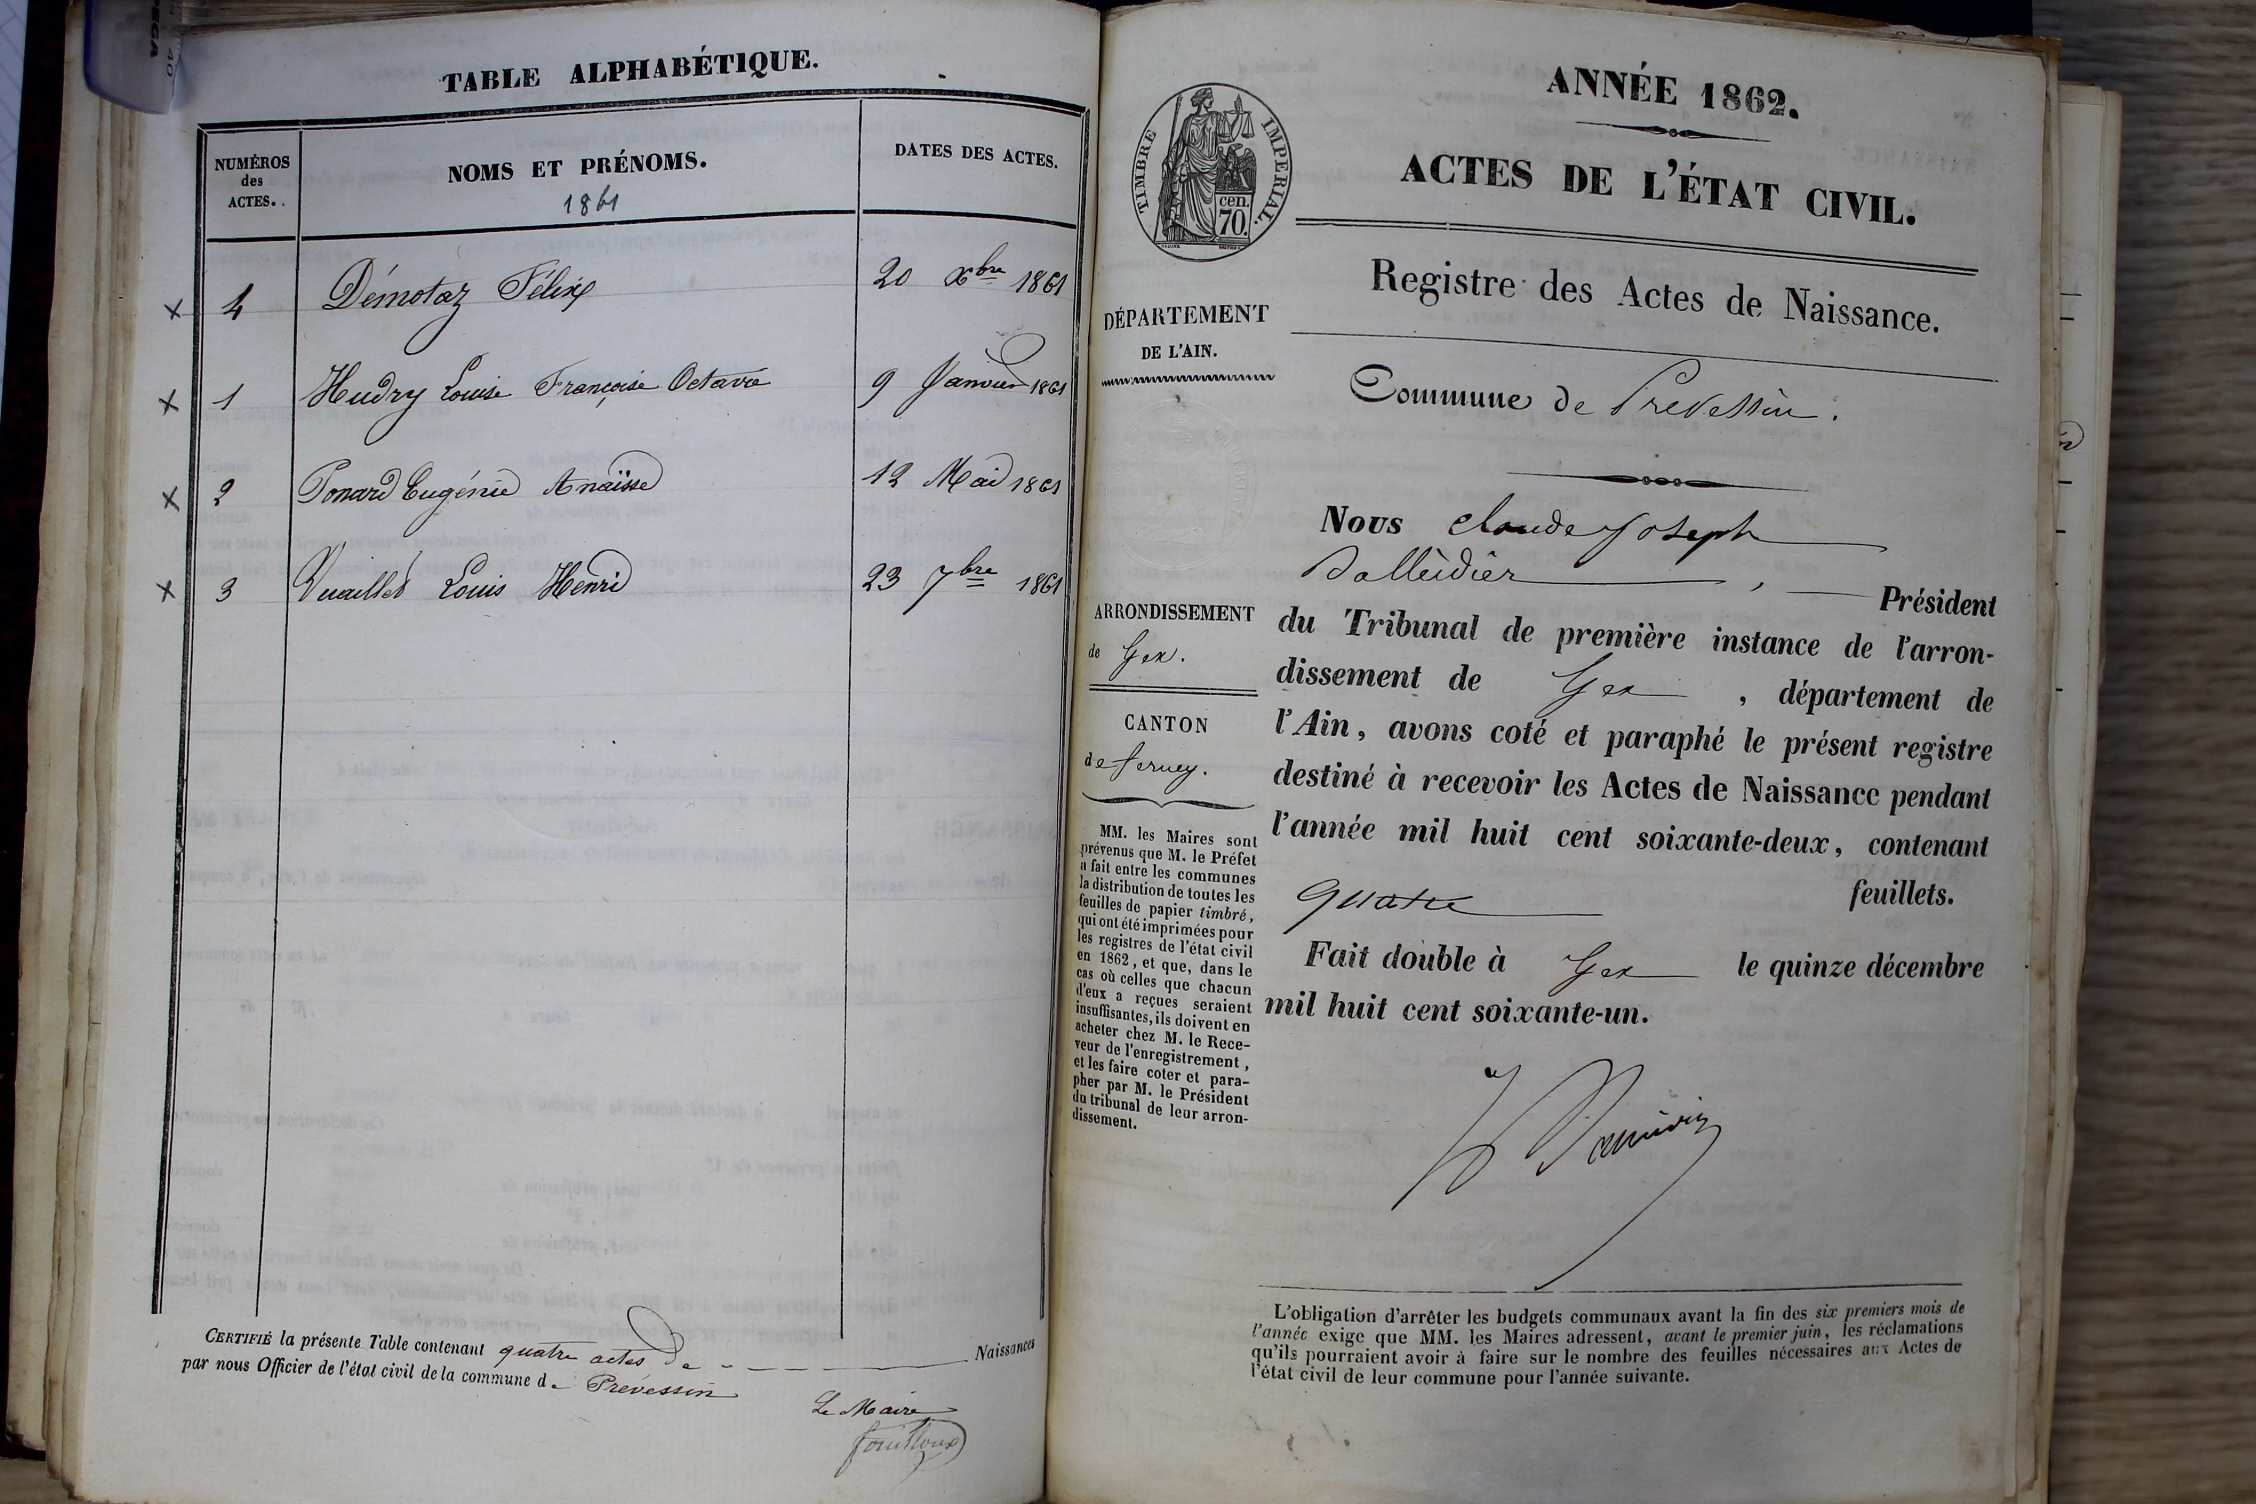 TABLE ALPHABÉTIQUE.
NUMÉROS
des
ACTES.
NOMS ET PRÉNOMS.
1861
DATES DES ACTES.
× 4 Démotaz Félix 20 Xbre 1861
× 1 Hudry Louise Françoise Octavie 9 Janvier 1861
× 2 Ponard Eugénie Anaïsse 12 Mai 1861
× 3 Vuaillet Louis Henri 23 7bre 1861
CERTIFIÉ la présente Table contenant quatre actes de Naissances
par nous Officier de l'état civil de la commune de Prévessin
Le Maire
fouilloux
ANNÉE 1862.
ACTES DE L'ÉTAT CIVIL.
TIMBRE IMPERIAL.
cen.
70.
Registre des Actes de Naissance.
DÉPARTEMENT
DE L'AIN.
Commune de Prevessin.
ARRONDISSEMENT
de Gex.
CANTON
de ferney.
MM. les Maires sont
prévenus que M. le Préfet
a fait entre les communes
la distribution de toutes les
feuilles de papier timbré,
qui ont été imprimées pour
les registres de l'état civil
en 1862, et que, dans le
cas où celles que chacun
d'eux a reçues seraient
insuffisantes, ils doivent en
acheter chez M. le Rece-
veur de l'enregistrement,
et les faire coter et para-
pher par M. le Président
du tribunal de leur arron-
dissement.
Nous Claude Joseph
, Président
du Tribunal de première instance de l'arron-
dissement de Gex , département de
l'Ain, avons coté et paraphé le présent registre
destiné à recevoir les Actes de Naissance pendant
l'année mil huit cent soixante-deux, contenant
quatre feuillets.
Fait double à Gex le quinze décembre
mil huit cent soixante-un.
L'obligation d'arrêter les budgets communaux avant la fin des six premiers mois de
l'année exige que MM. les Maires adressent, avant le premier juin, les réclamations
qu'ils pourraient avoir à faire sur le nombre des feuilles nécessaires aux Actes de
l'état civil de leur commune pour l'année suivante.